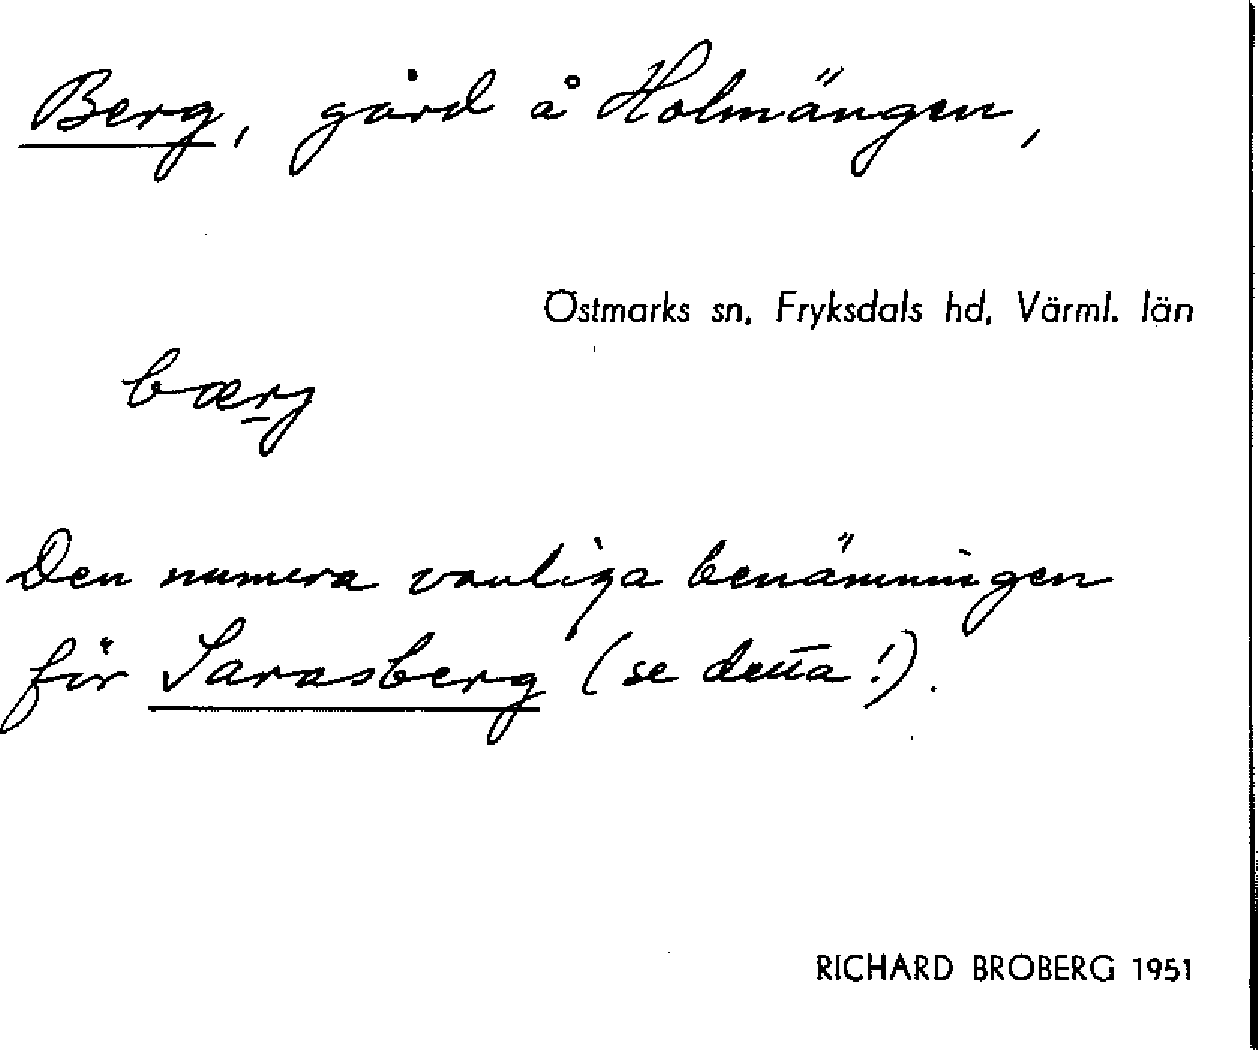 Berg, gård å Holmängen,
Östmarks sn, Fryksdals hd, Värml. län
bærj
Den numera vanliga benämningen
för Sarasberg (se detta!).
RICHARD BROBERG 1951